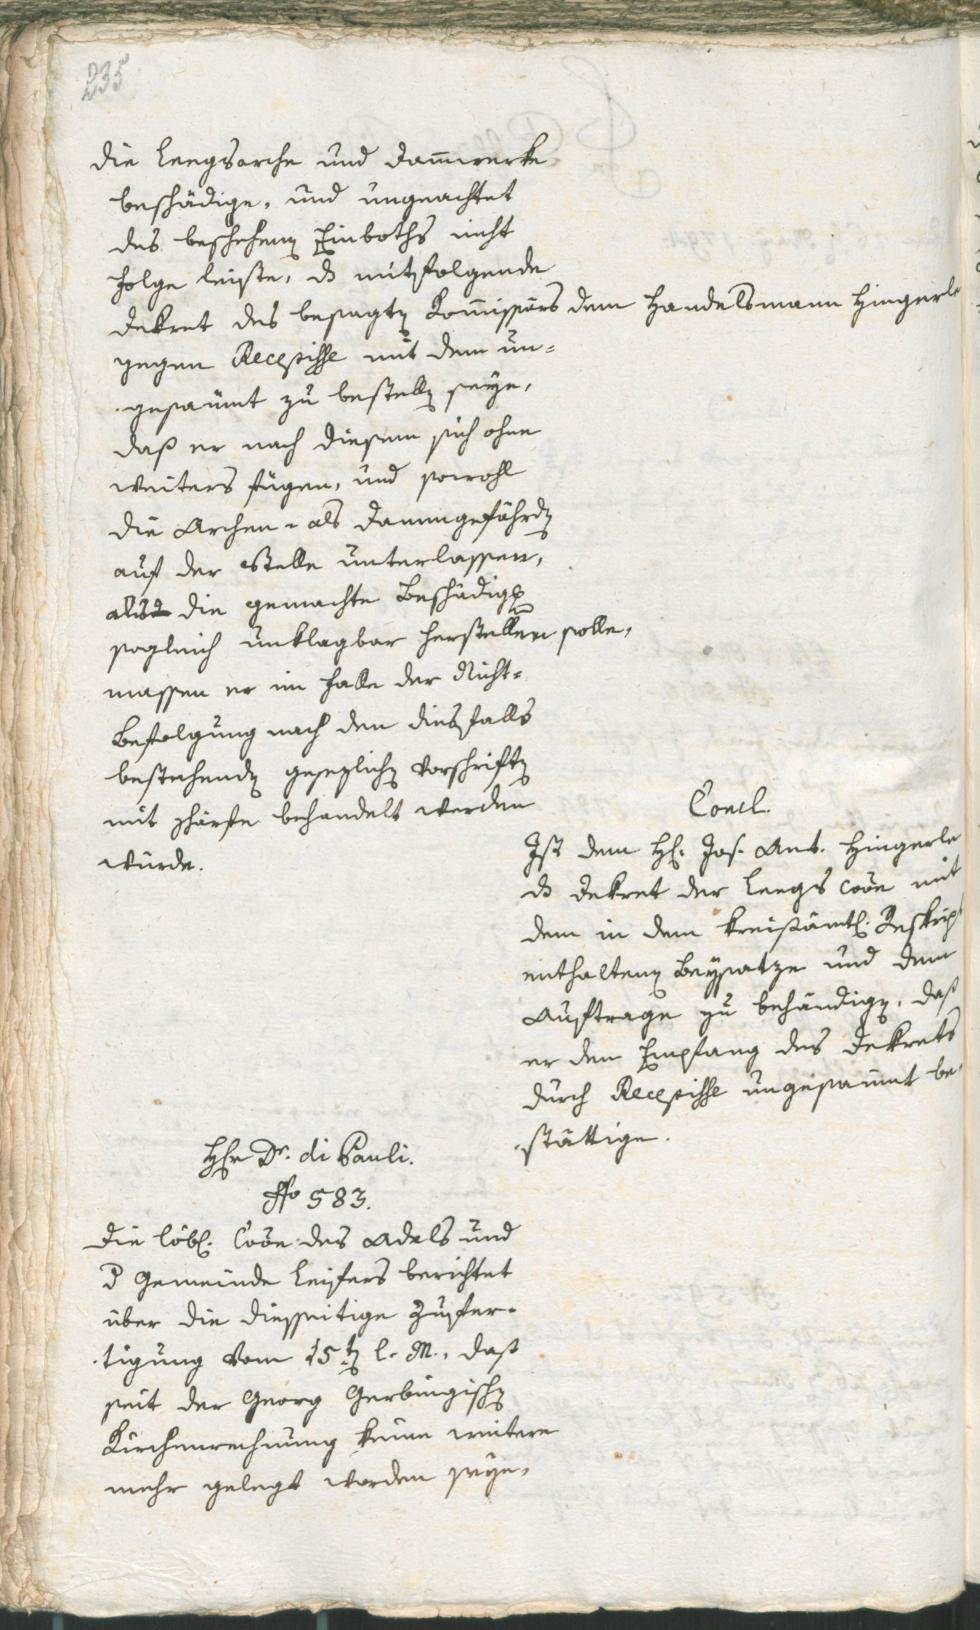 235
die Leegsarche und Dammwerke
beschädige, und ungeachtet
des beschehenen Einboths nicht
Folge leiste, das mitfolgende
Dekret des besagten Kommissärs dem Handelsmann Hingerle
gegen Recepisse mit dem un=
gesaumt zu bestellen seye,
daß er nach diesem sich ohne
weiters fügen, und sowohl
die Archen- als Dammgefährden
auf der Stelle unterlassen,
als die gemachte Beschädigung
sogleich unklagbar herstellen solle,
massen er im Falle der Nicht=
Befolgung nach den diesfalls
bestehenden gesezlichen Vorschriften
mit Schärfe behandelt werden
würde.
Concl.
Ist dem H: Jos. Ant. Hingerle
das Dekret der Leegs Coõn mit
dem in dem kreisämtl: Reskript
enthaltenen Beysatze und dem
Auftrage zu behändigen, daß
er den Empfang des Dekrets
durch Recepisse ungesaumt be=
stättige.
Hr Dr. di Pauli.
No 583.
Die löbl: Coõn des Adels und
der Gemeinde Leifers berichtet
über die diesseitige Zufer=
tigung vom 15ten l. M., daß
seit der Georg Gerbingischen
Kirchenrechnung keine weitere
mehr gelegt worden seye,